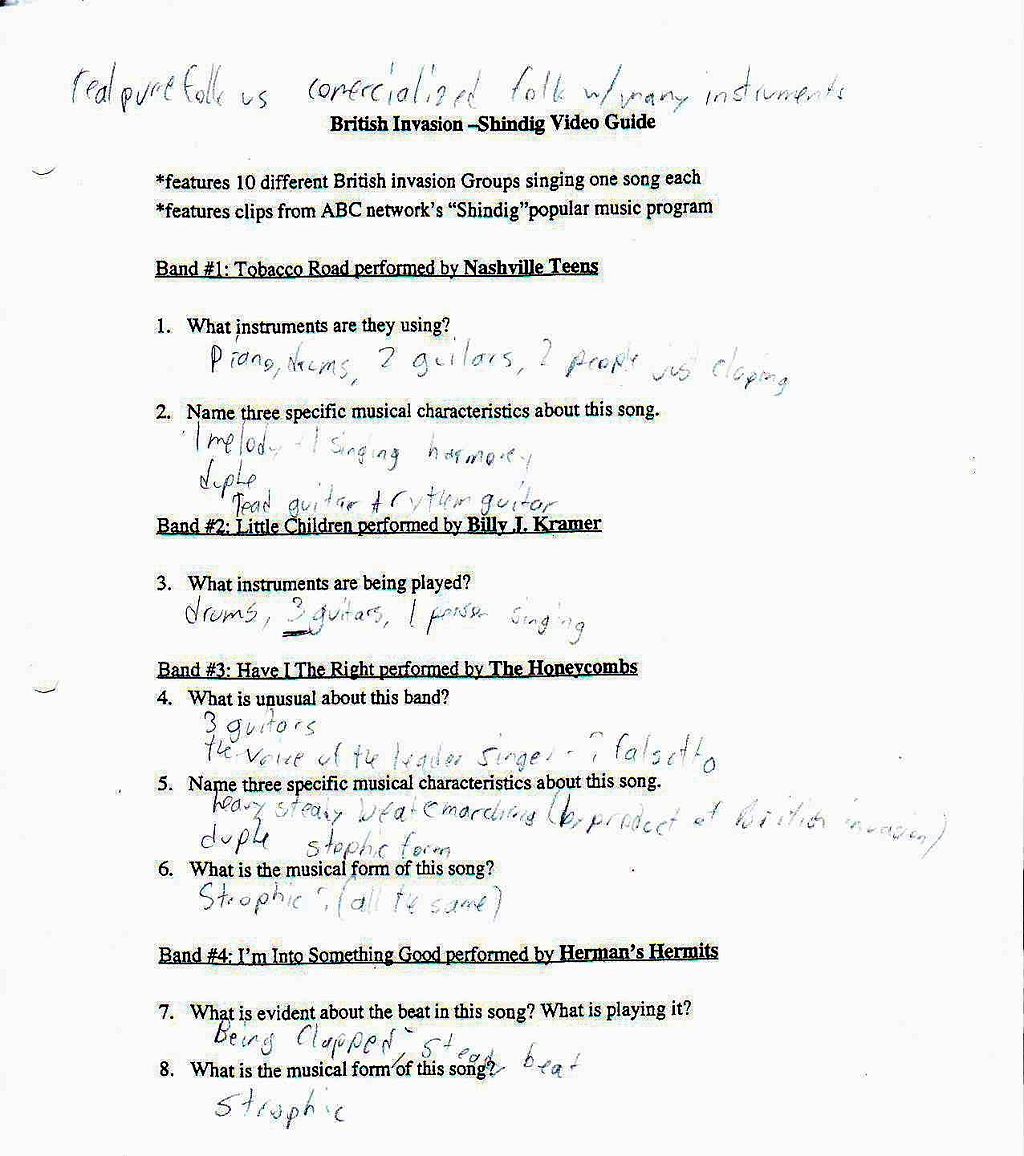 real pure folk vs comercialized folk w/many instruments
British Invasion –Shindig Video Guide
*features 10 different British invasion Groups singing one song each
*features clips from ABC network's “Shindig”popular music program
Band #1: Tobacco Road performed by Nashville Teens
1. What instruments are they using?
Piano, drums, 2 guitars, 2 people just claping
2. Name three specific musical characteristics about this song.
1 melody - 1 singing harmoney
duple
lead guitar + rythem guitar
Band #2: Little Children performed by Billy J. Kramer
3. What instruments are being played?
drums, 3 guitars, 1 person singing
Band #3: Have I The Right performed by The Honeycombs
4. What is unusual about this band?
3 guitars
the voice of the leader singer - falsetto
5. Name three specific musical characteristics about this song.
heavy steady beat marching (by product of British invasion)
duple stophic form
6. What is the musical form of this song?
Strophic (all the same)
Band #4: I'm Into Something Good performed by Herman's Hermits
7. What is evident about the beat in this song? What is playing it?
Being Clapped, steady beat
8. What is the musical form of this song?
strophic